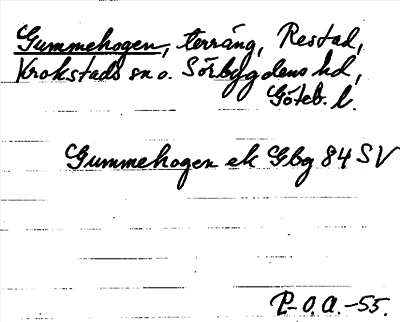 Gummehogen, terräng, Restad,
Krokstads sn o. Sörbygdens hd,
Göteb. l.
Gummehogen ek Gbg 84 SV
P-O.A.-55.